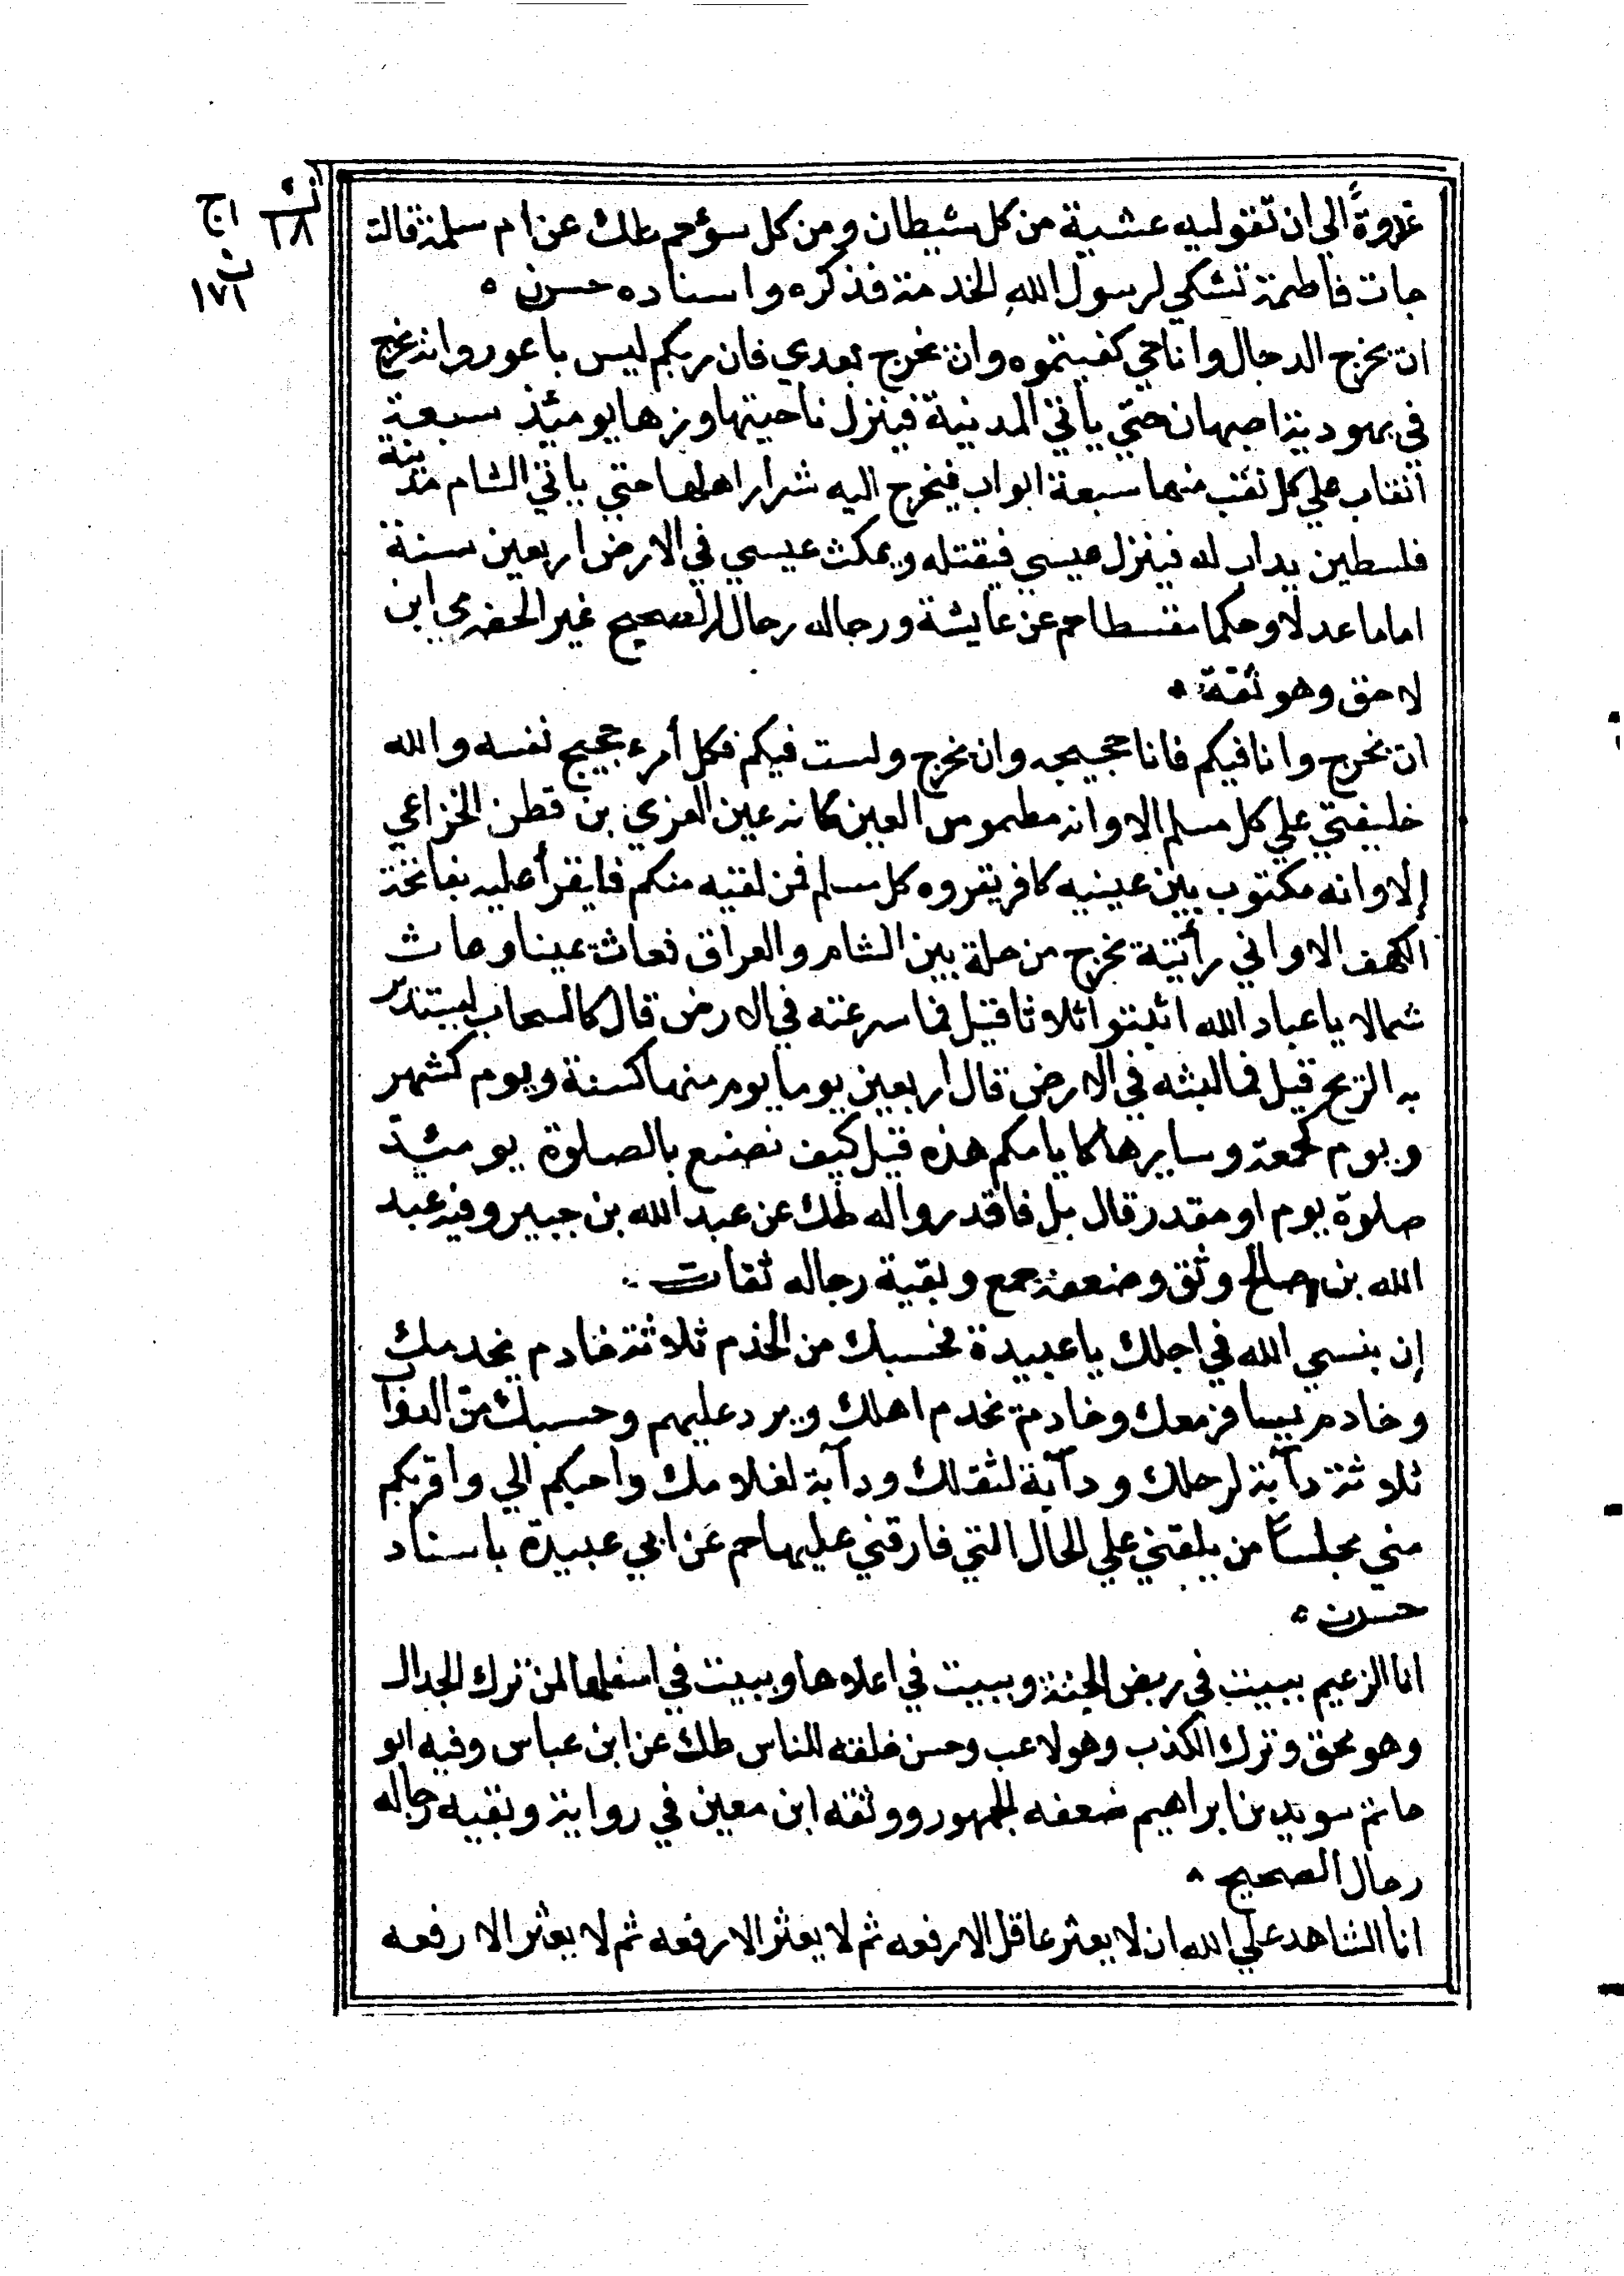 غدوةً الى ان تقوليه عشية من كل شيطان ومن كل سوء حم طك عن ام سلمة قالت
جات فاطمة تشكي لرسول الله الخدمة فذكره واسناده حسن ه
ان يخرج الدجال وانا حي كفيتموه وان يخرج بعدي فان ربكم ليس باعور وانه يخرج
في يهودية اصبهان حتي ياتي المدينة فينزل ناحيتها ولها يومئذ سبعة
انقاب علي كل نقب منها سبعة ابواب فيخرج اليه شرار اهلها حتي ياتي الشام مدينة
فلسطين بباب لد فينزل عيسي فيقتله ويمكث عيسي في الارض اربعين سنة
اماما عدلا وحكما مقسطا حم عن عايشة ورجاله رجال الصحيح غير الحضرمي ابن
لاحق وهو ثقة ه
ان يخرج وانا فيكم فانا حجيجه وان يخرج ولست فيكم فكل أمرء حجيج نفسه والله
خليفتي علي كل مسلم الا وانه مطموس العين كانه عين العزي بن قطن الخزاعي
إلا وانه مكتوب بين عينيه كافر يقروه كل مسلم فمن لقيه منكم فليقرأ عليه بفاتحة
الكهف الا واني رأيته يخرج من حلة بين الشام والعراق فعاث يمينا وعاث
شمالا يا عباد الله اثبتوا ثلاثا قيل فما سرعته في الارض قال كالسحاب يستدبر
به الريح قيل فما لبثه في الارض قال اربعين يوما يوم منها كسنة ويوم كشهر
ويوم كجمعة وسايرها كايامكم هذه قيل كيف نصنع بالصلوة يومئذ
صلوة يوم او مقدر قال بل فاقدروا له طك عن عبد الله بن جبير وفيه عبد
الله بن صالح وثق وضعفه جمع وبقية رجاله ثقات
إن ينسي الله في اجلك يا عبيدة فحسبك من الخدم ثلاثة خادم يخدمك
وخادم يسافر معك وخادمة تخدم اهلك ويرد عليهم وحسبك من الدواب
ثلاثة دآبة لرحلك ودآبة لثقلك ودآبة لغلامك واحبكم الي واقربكم
مني مجلساً من يلقني علي الحال التي فارقني عليها حم عن ابي عبيدة باسناد
حسن ه
انا الزعيم ببيت في ربض الجنة وببيت في اعلاها وببيت في اسفلها لمن ترك الجدال
وهو محق وترك الكذب وهو لاعب وحسن خلقه للناس طك عن ابن عباس وفيه ابو
حاتم سويد بن ابراهيم ضعفه الجمهور ووثقه ابن معين في رواية وبقية رجاله
رجال الصحيح ه
انا الشاهد علي الله ان لا يعثر عاقل الا رفعه ثم لا يعثر الا رفعه ثم لا يعثر الا رفعه